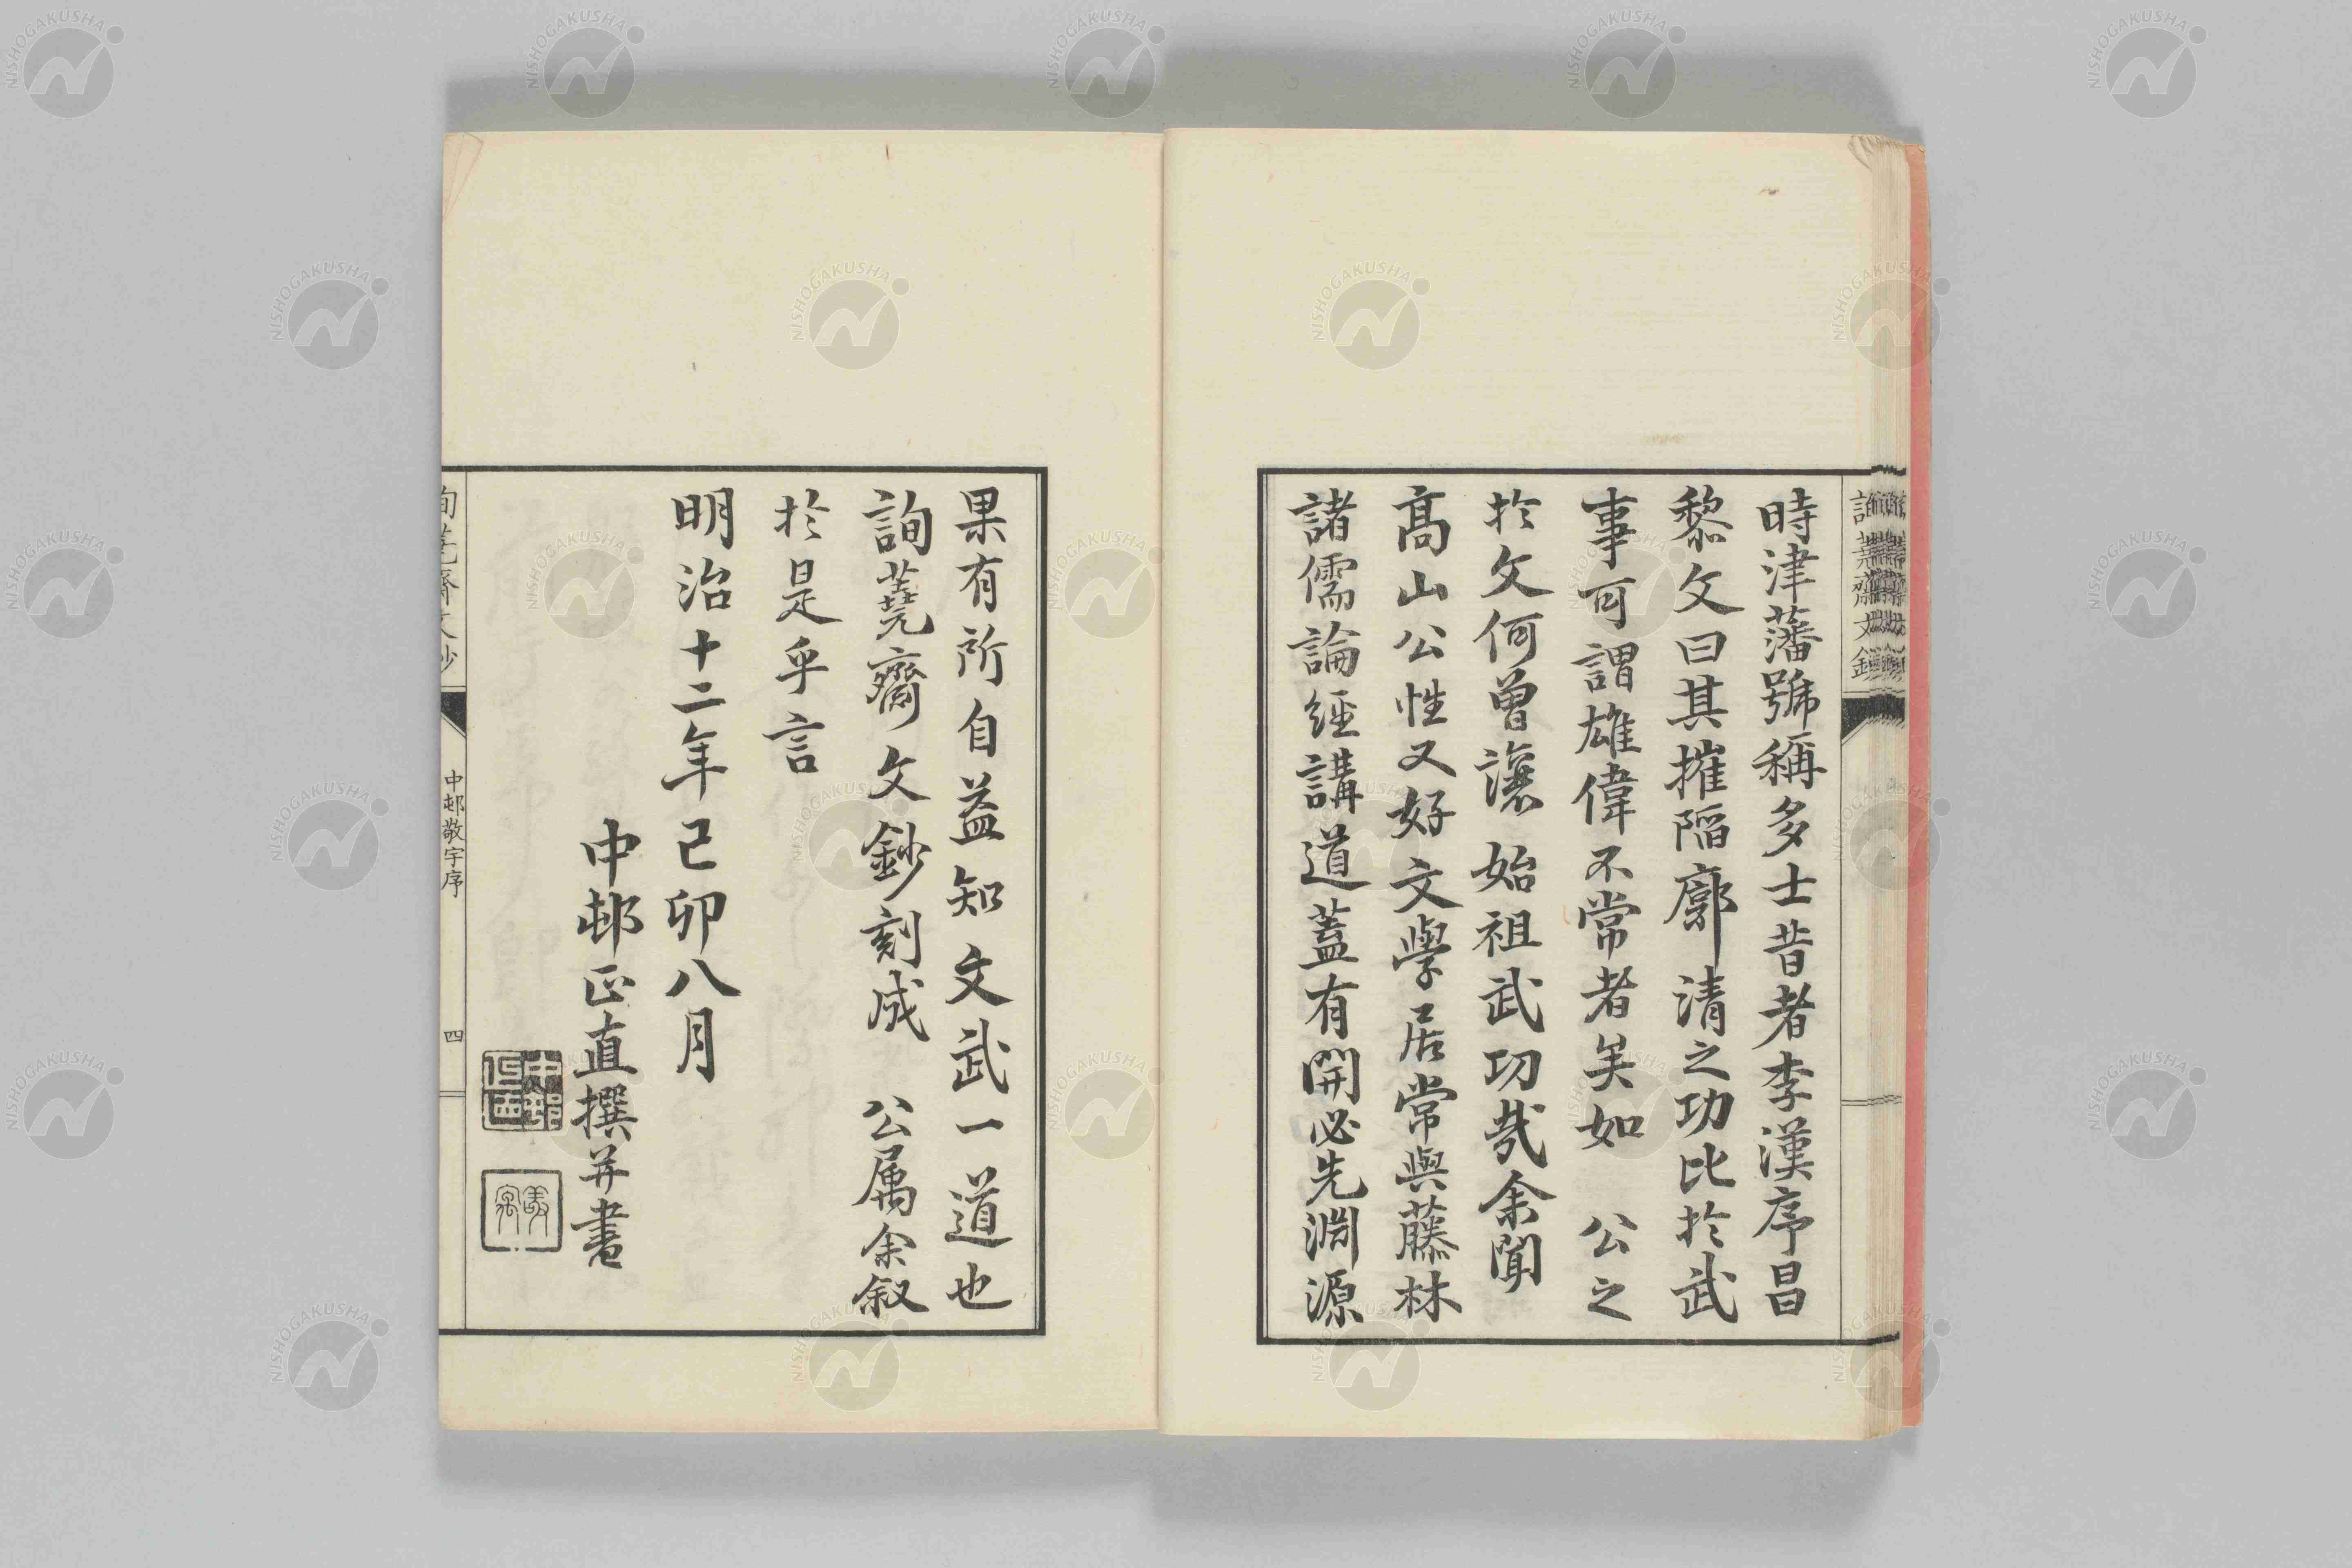 時津藩號稱多士昔者李漢序昌
黎文曰其摧陷廓清之功比於武
事可謂雄偉不常者矣如 公之
於文何曾讓 始祖武功哉余聞
高山公性又好文學居常與藤林
諸儒論經講道蓋有開必先淵源
果有所自益知文武一道也
詢蕘齋文鈔刻成 公属余叙
於是乎言
明治十二年己卯八月
中邨正直撰并書
詢蕘齋文鈔
中邨敬宇序
四
NISHOGAKUSHA